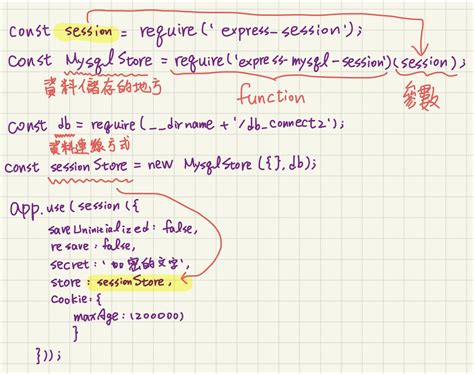 const session = require('express-session');
const MysqlStore = require('express-mysql-session')(session);
資料儲存的地方 function 參數
const db = require(__dirname + '/db_connect2');
資料連線方式
const sessionStore = new MysqlStore({}, db);
app.use(session({
saveUninitialized: false,
resave: false,
secret: '加密的文字',
store: sessionStore,
cookie: {
maxAge: 1200000
}
}));